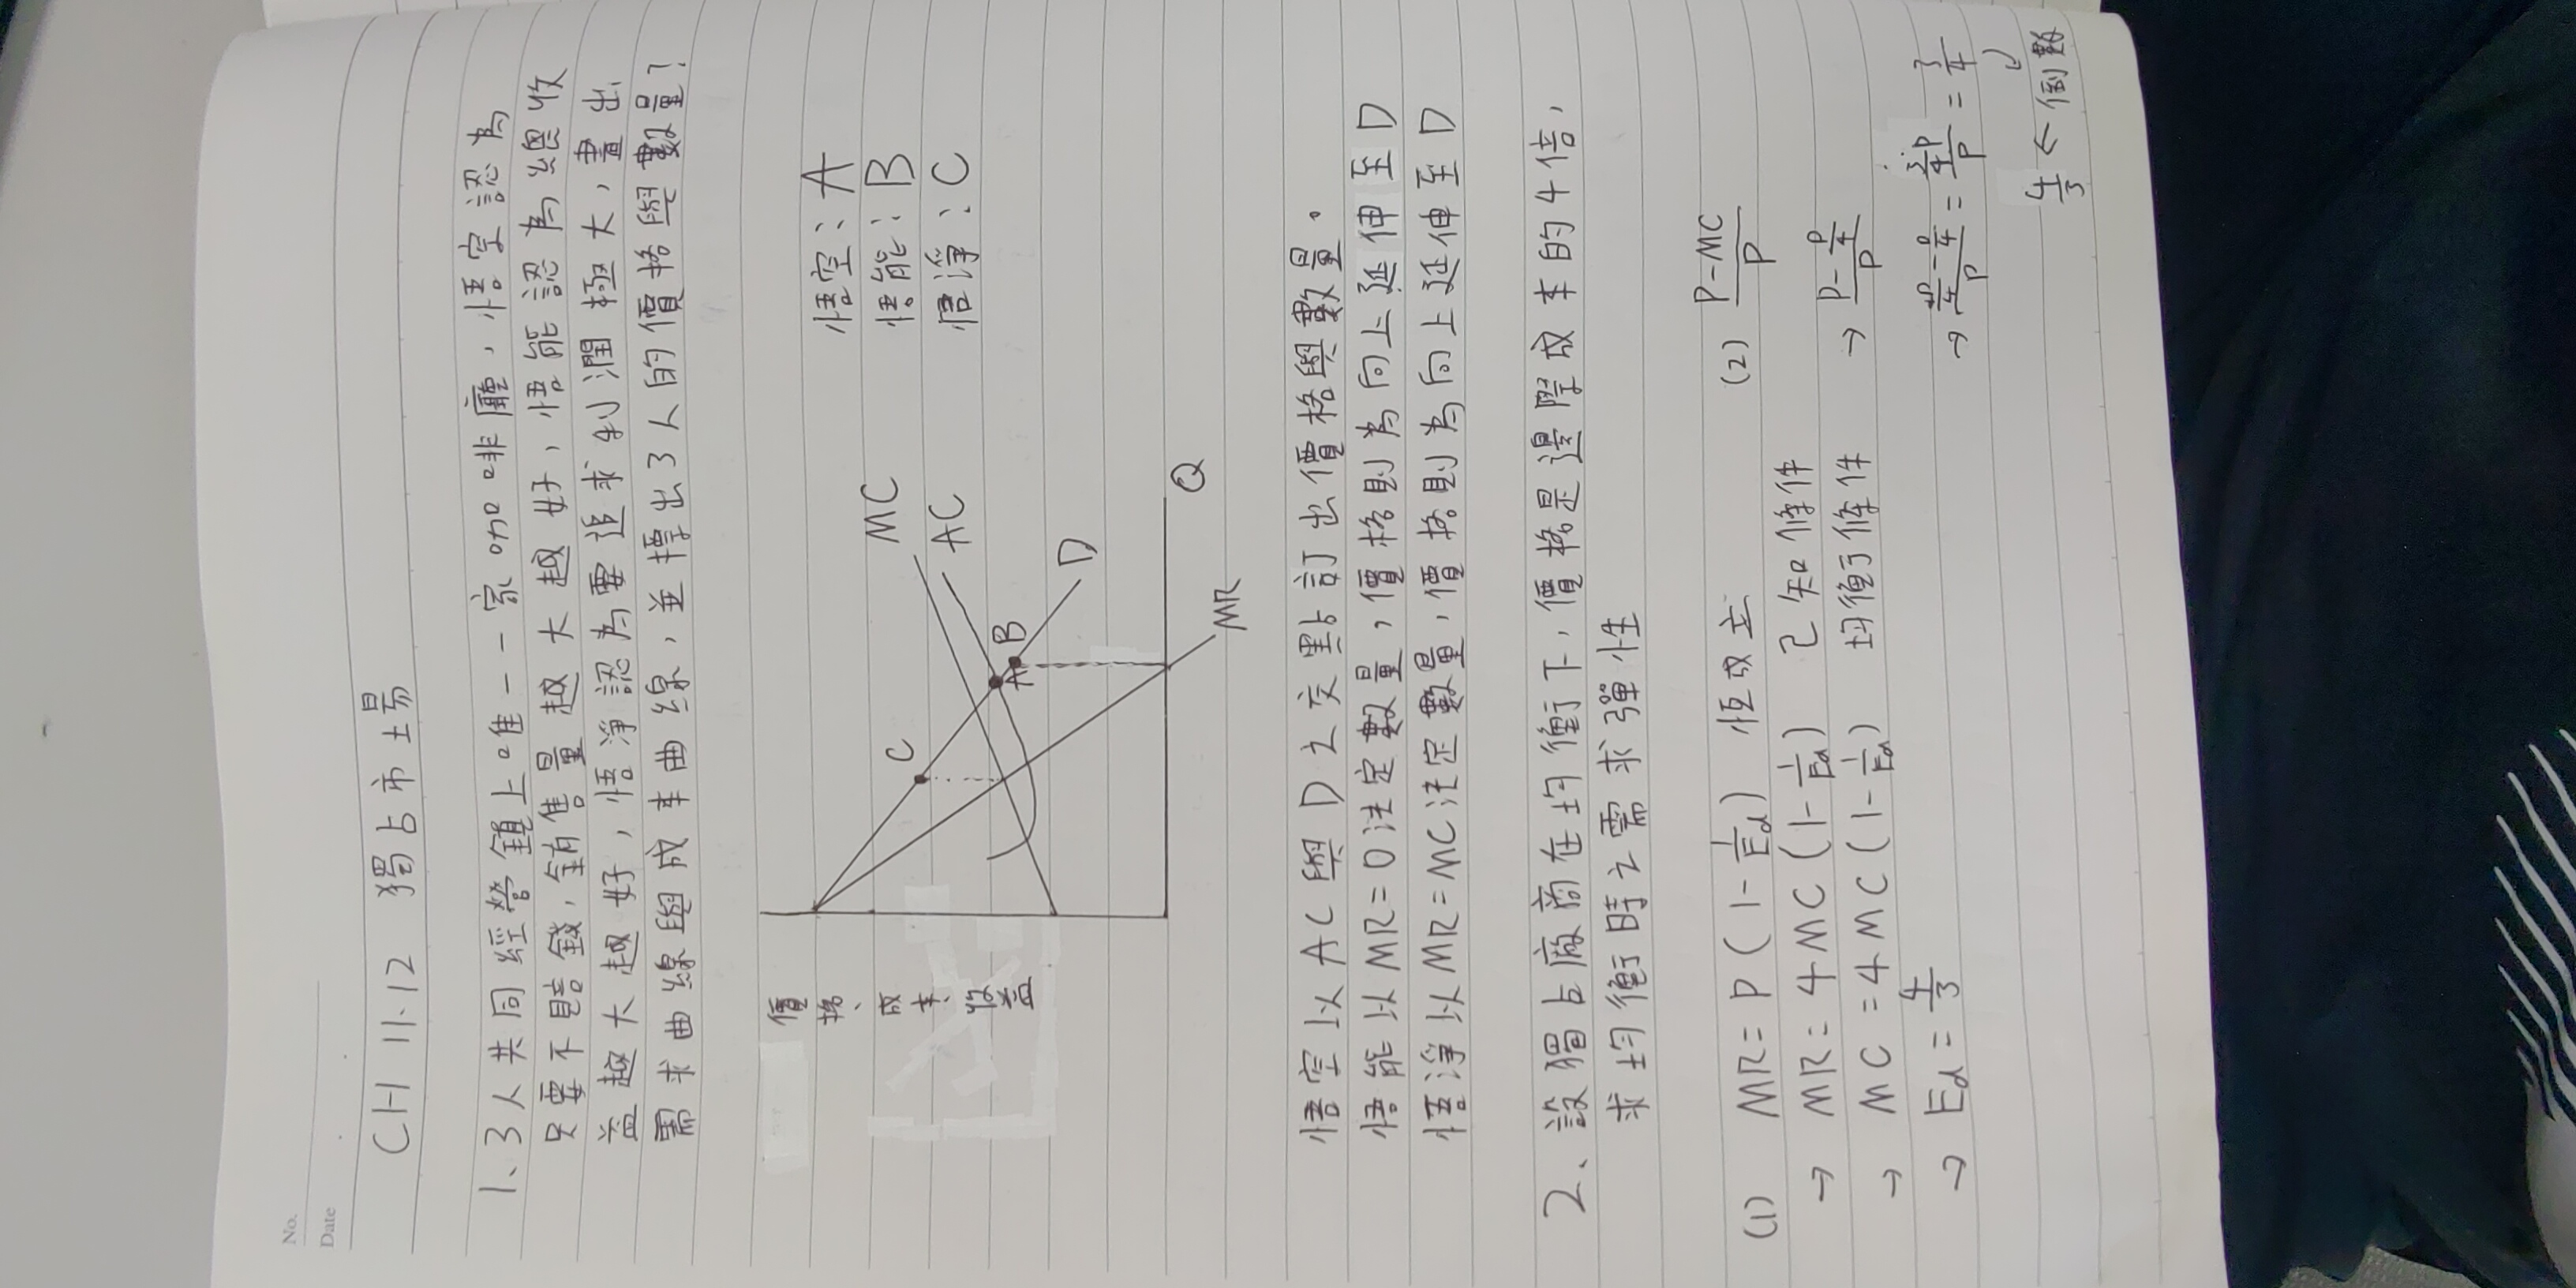 No.
Date
CH 11.12 獨占市場
1、3人共同經營鎮上唯一一家咖啡廳，悟空認為
只要不賠錢，銷售量越大越好，悟能認為總收
益越大越好，悟淨認為要追求利潤極大，畫出
需求曲線與成本曲線，並標出3人的價格與數量?
價格、成本、收益
C
MC
AC
A
B
D
Q
MR
悟空：A
悟能：B
悟淨：C
悟空以AC與D之交點訂出價格與數量。
悟能以MR=0決定數量，價格則為向上延伸至D
悟淨以MR=MC決定數量，價格則為向上延伸至D
2、設獨占廠商在均衡下，價格是邊際成本的4倍，
求均衡時之需求彈性
(1) MR = P (1 - 1/Ed) 恆成立
→ MR = 4MC (1 - 1/Ed) 已知條件
→ MC = 4MC (1 - 1/Ed) 均衡條件
→ Ed = 4/3
(2) P-MC/P
→ P - P/4 / P
→ 4P/4 - P/4 / P = 3/4P / P = 3/4
4/3 ← 倒數